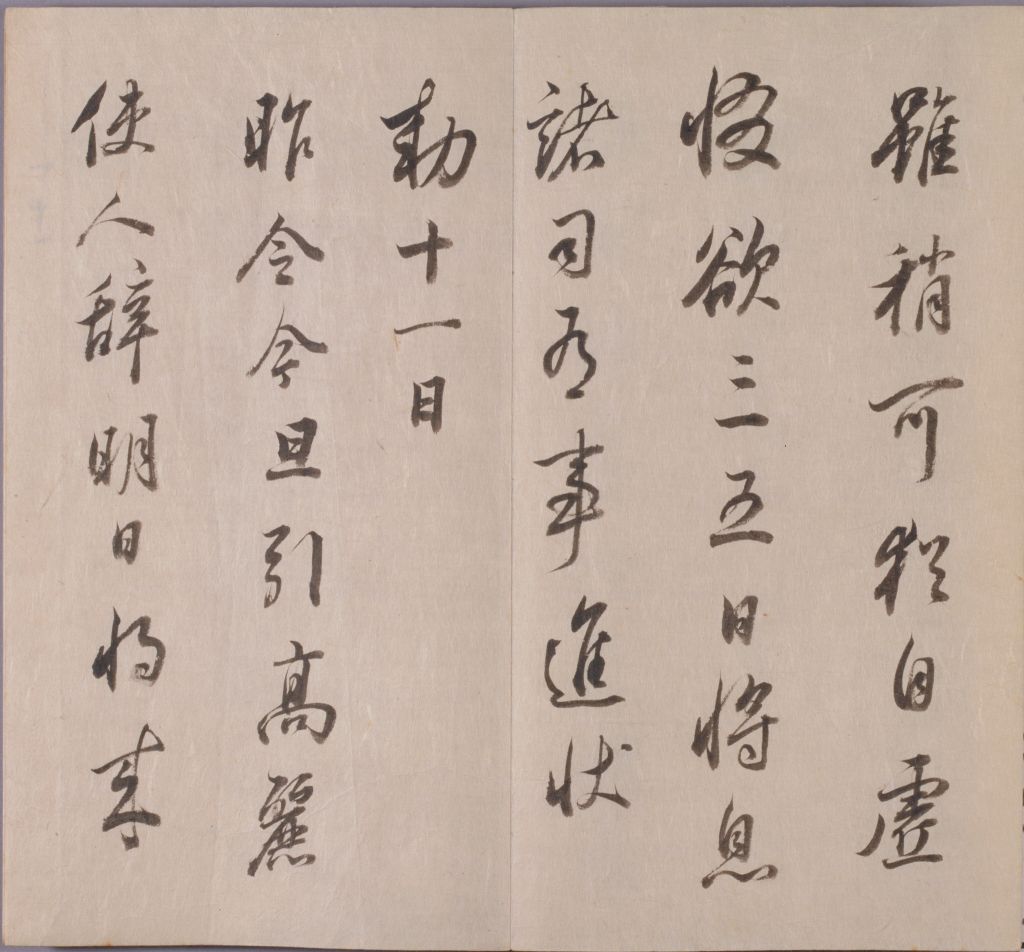 雖稍可猶自虛
惙欲三五日將息
諸司有事進狀
勅十一日
昨令今旦引高麗
使人辭明日將來